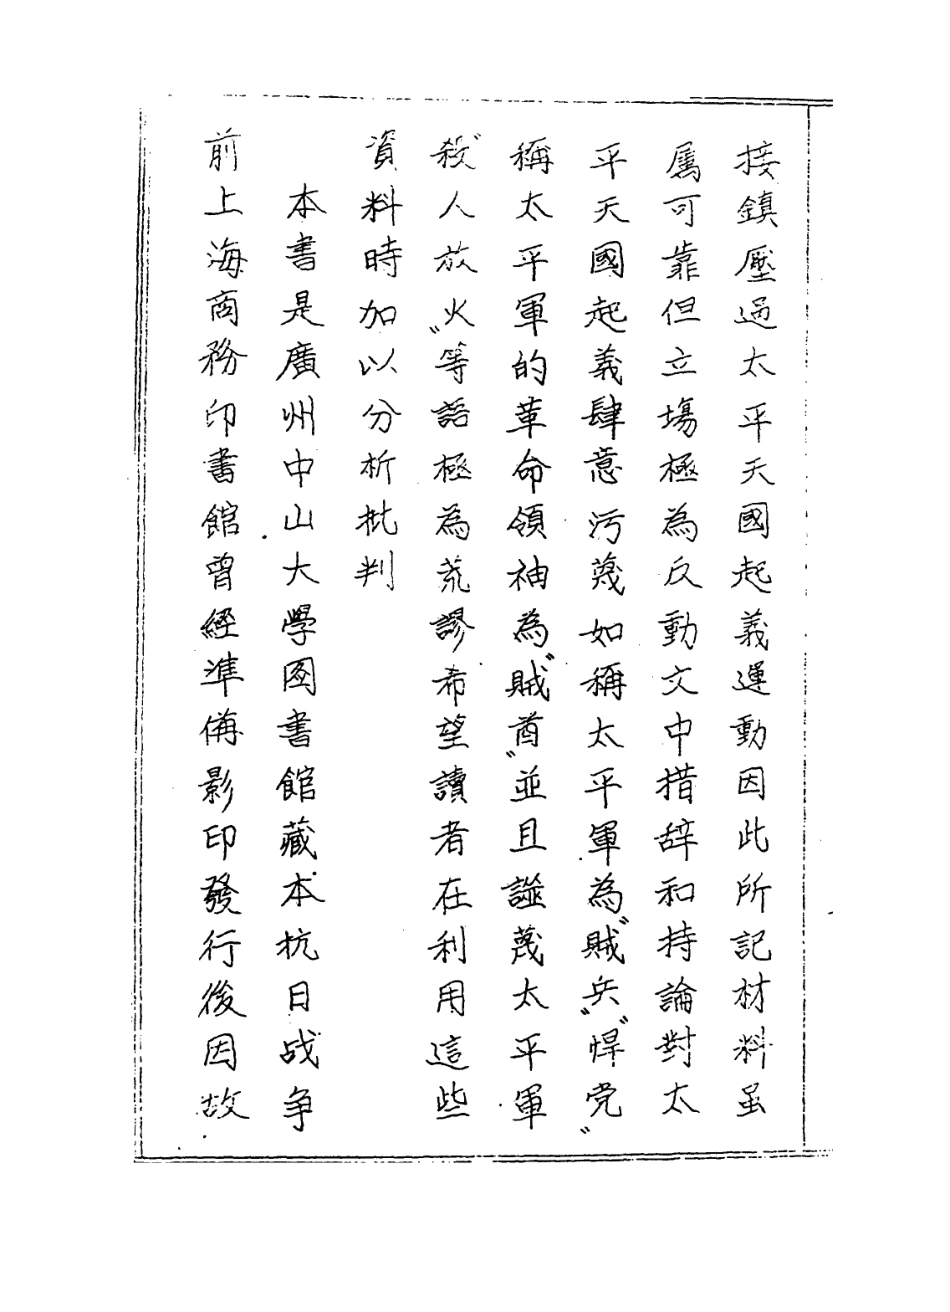 接鎮壓過太平天國起義運動因此所記材料虽
属可靠但立場極為反動文中措辞和持論對太
平天國起義肆意污蔑如稱太平軍為“賊兵”“悍党”
稱太平軍的革命領袖為“賊酋”並且誣蔑太平軍
“殺人放火”等語極為荒謬希望讀者在利用這些
資料時加以分析批判
本書是廣州中山大學图書館藏本抗日战争
前上海商務印書館曾經準備影印發行後因故